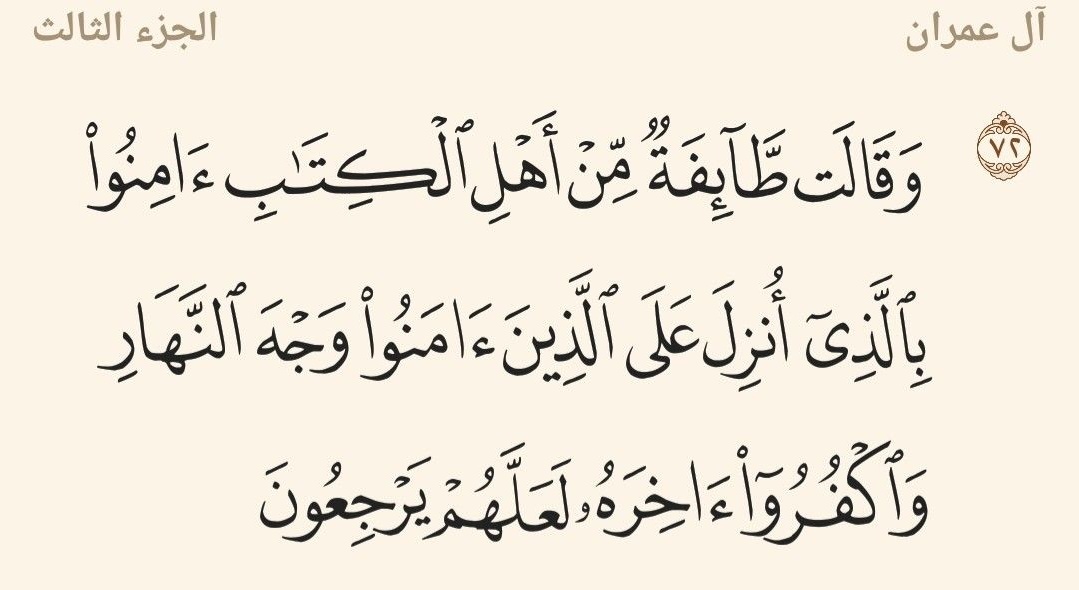 آل عمران الجزء الثالث
٧٢ وَقَالَت طَّآئِفَةٌ مِّنْ أَهْلِ ٱلْكِتَـٰبِ ءَامِنُوا۟
بِٱلَّذِىٓ أُنزِلَ عَلَى ٱلَّذِينَ ءَامَنُوا۟ وَجْهَ ٱلنَّهَارِ
وَٱكْفُرُوٓا۟ ءَاخِرَهُۥ لَعَلَّهُمْ يَرْجِعُونَ